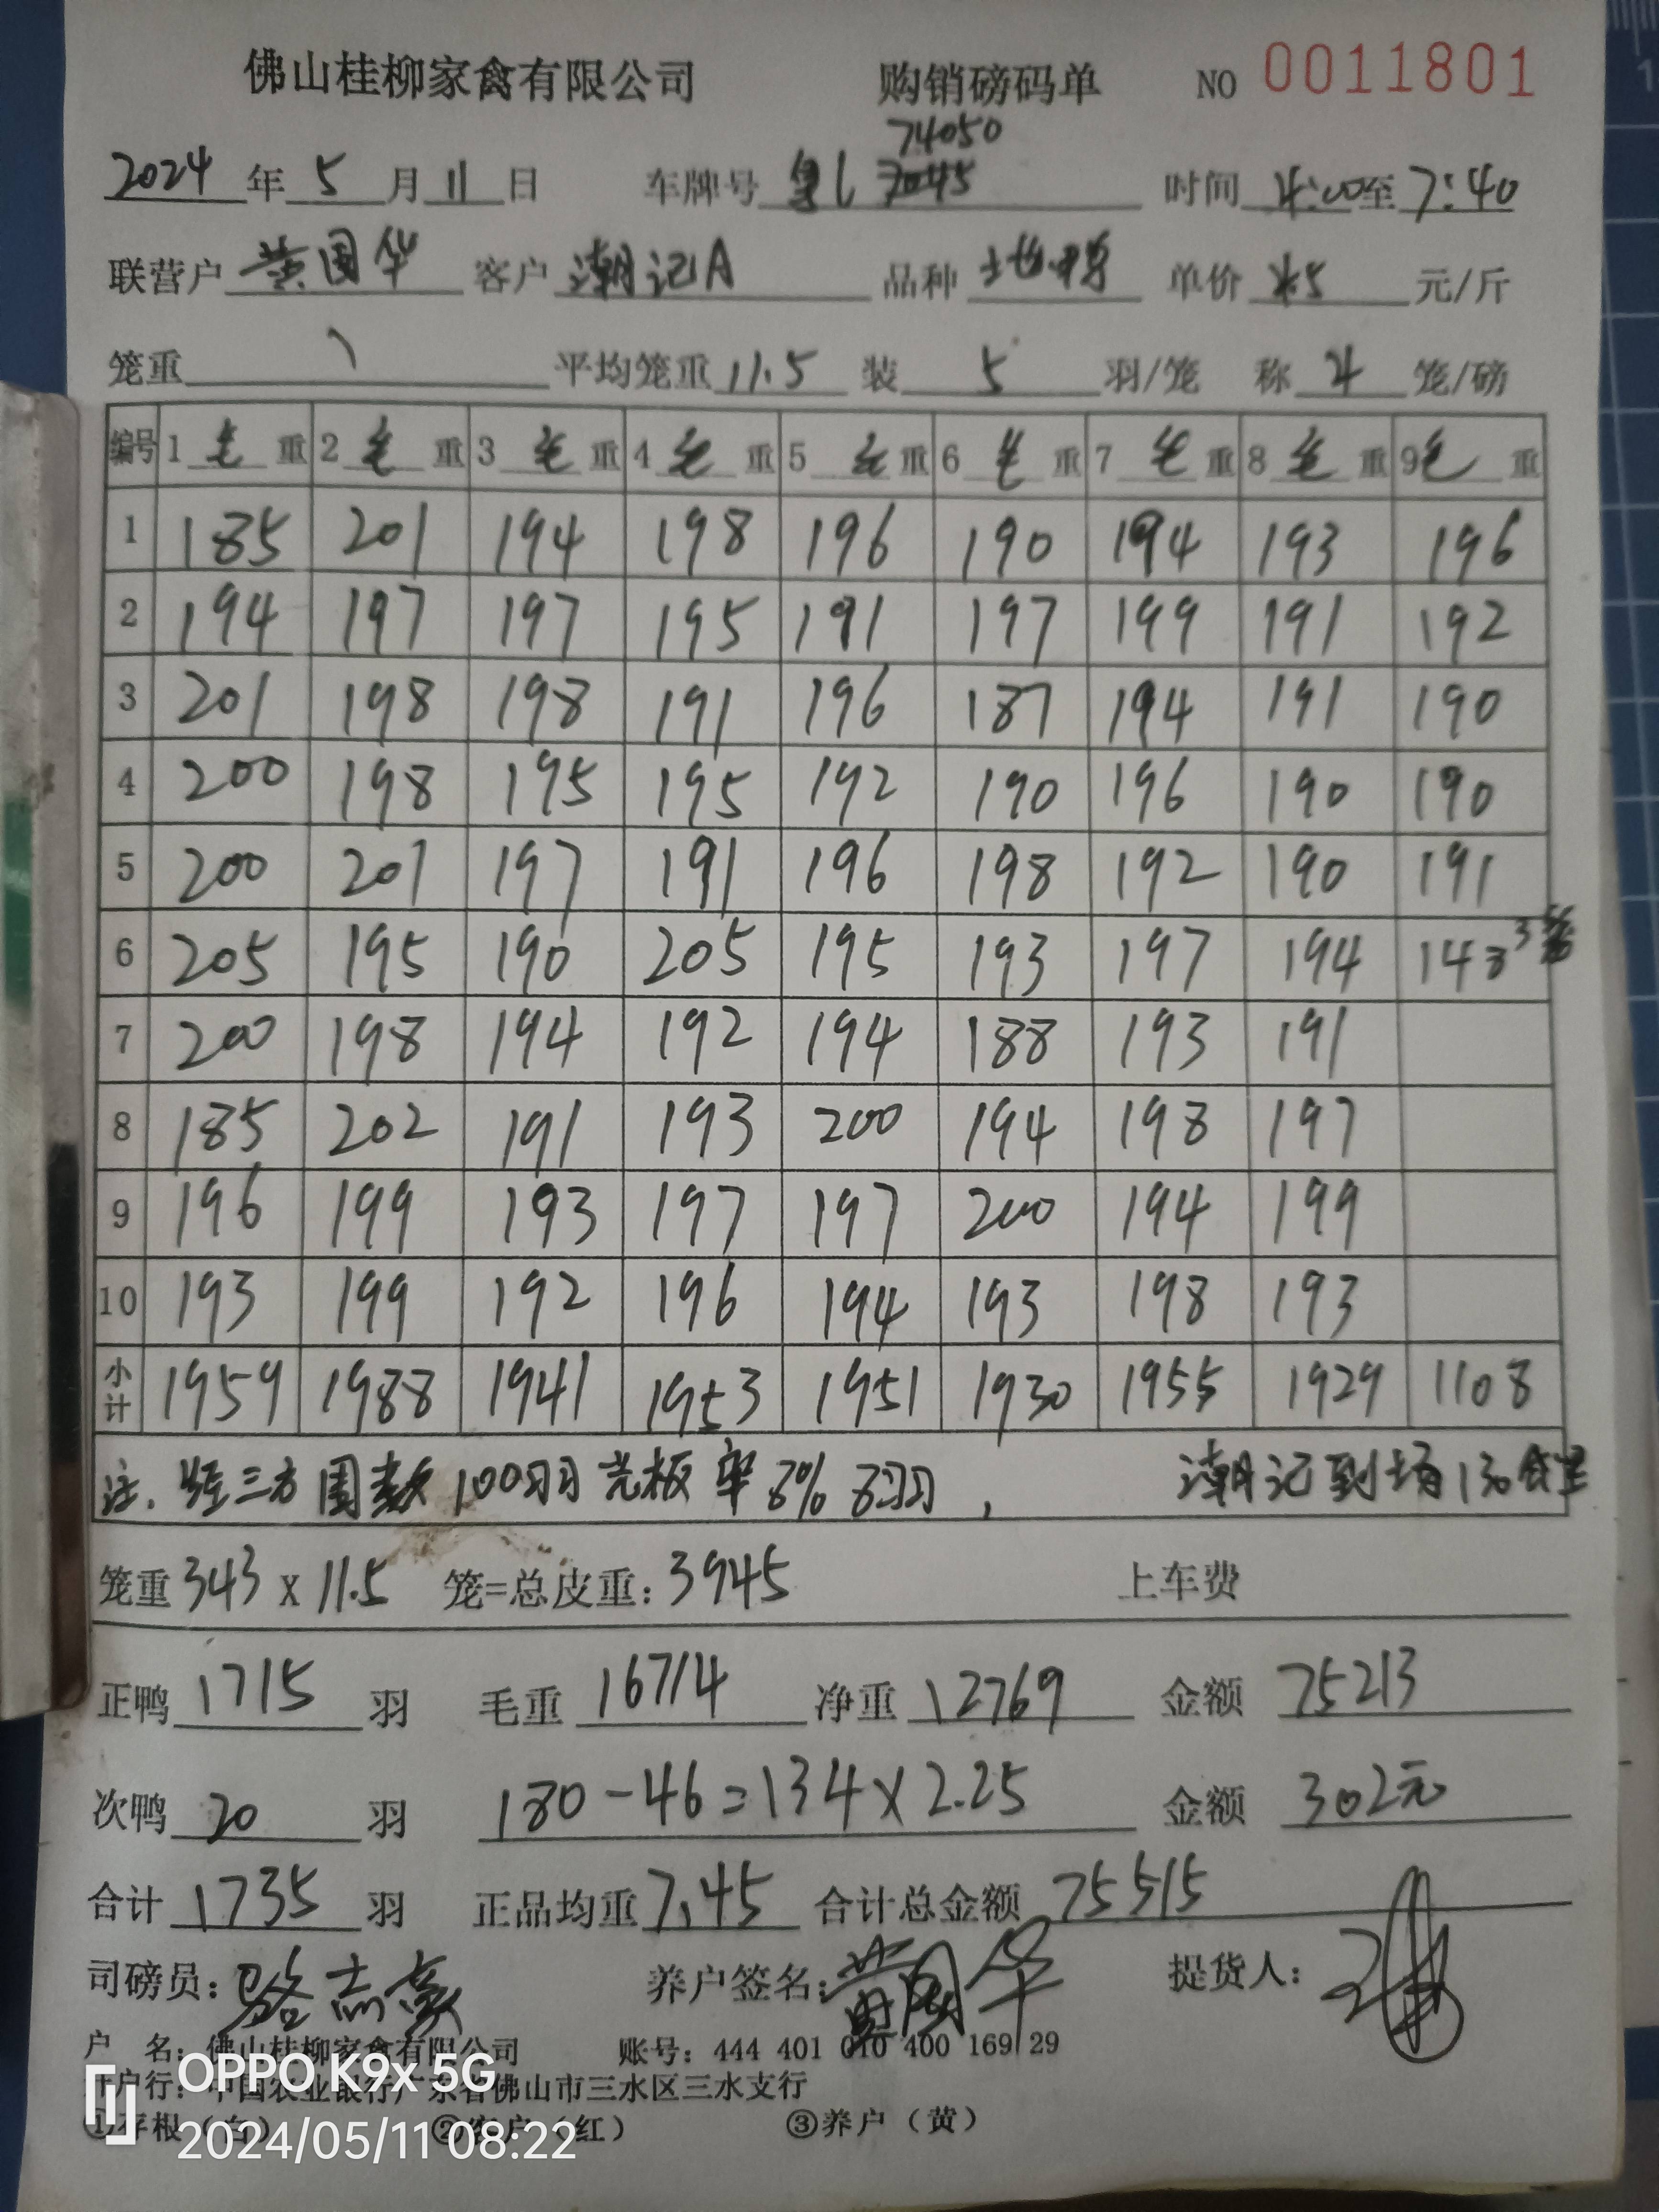 佛山桂柳家禽有限公司 购销磅码单 NO 0011801
74050
2024 年 5 月 11 日 车牌号 时间 4:00 至 7:40
联营户 黄国华 客户 潮记A 品种 单价 元/斤
笼重 平均笼重 11.5 装 5 羽/笼 称 4 笼/磅
编号 1 毛 重 2 毛 重 3 毛 重 4 毛 重 5 毛 重 6 毛 重 7 毛 重 8 毛 重 9 毛 重
1 185 201 194 198 196 190 194 193 196
2 194 197 197 195 191 197 199 191 192
3 201 198 198 191 196 187 194 191 190
4 200 198 195 195 192 190 196 190 190
5 200 201 197 191 196 198 192 190 191
6 205 195 190 205 195 193 197 194 148 3笼
7 200 198 194 192 194 188 193 191
8 185 202 191 193 200 194 198 197
9 196 199 193 197 197 200 194 199
10 193 199 192 196 194 193 198 193
小计 1959 1988 1941 1953 1951 1930 1955 1929 1108
注. 经三方围数100羽羽光板率8% 8羽, 潮记到场130
笼重 343 x 11.5 笼=总皮重: 3945 上车费
正鸭 1715 羽 毛重 16714 净重 12769 金额 75213
次鸭 20 羽 180-46=134×2.25 金额 302元
合计 1735 羽 正品均重 7.45 合计总金额 75515
司磅员: 骆志豪 养户签名: 黄国华 提货人:
户 名: 佛山桂柳家禽有限公司 账号: 444 401 010 400 169 29
开户行: 中国农业银行广东省佛山市三水区三水支行
①存根(白) ②客户(红) ③养户(黄)
OPPO K9x 5G
2024/05/11 08:22